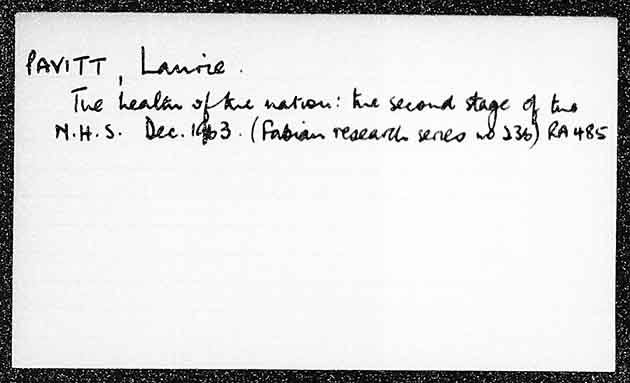 PAVITT, Laurie.
The health of the nation: the second stage of the
N.H.S. Dec. 1963. (Fabian research series no 236) RA 485